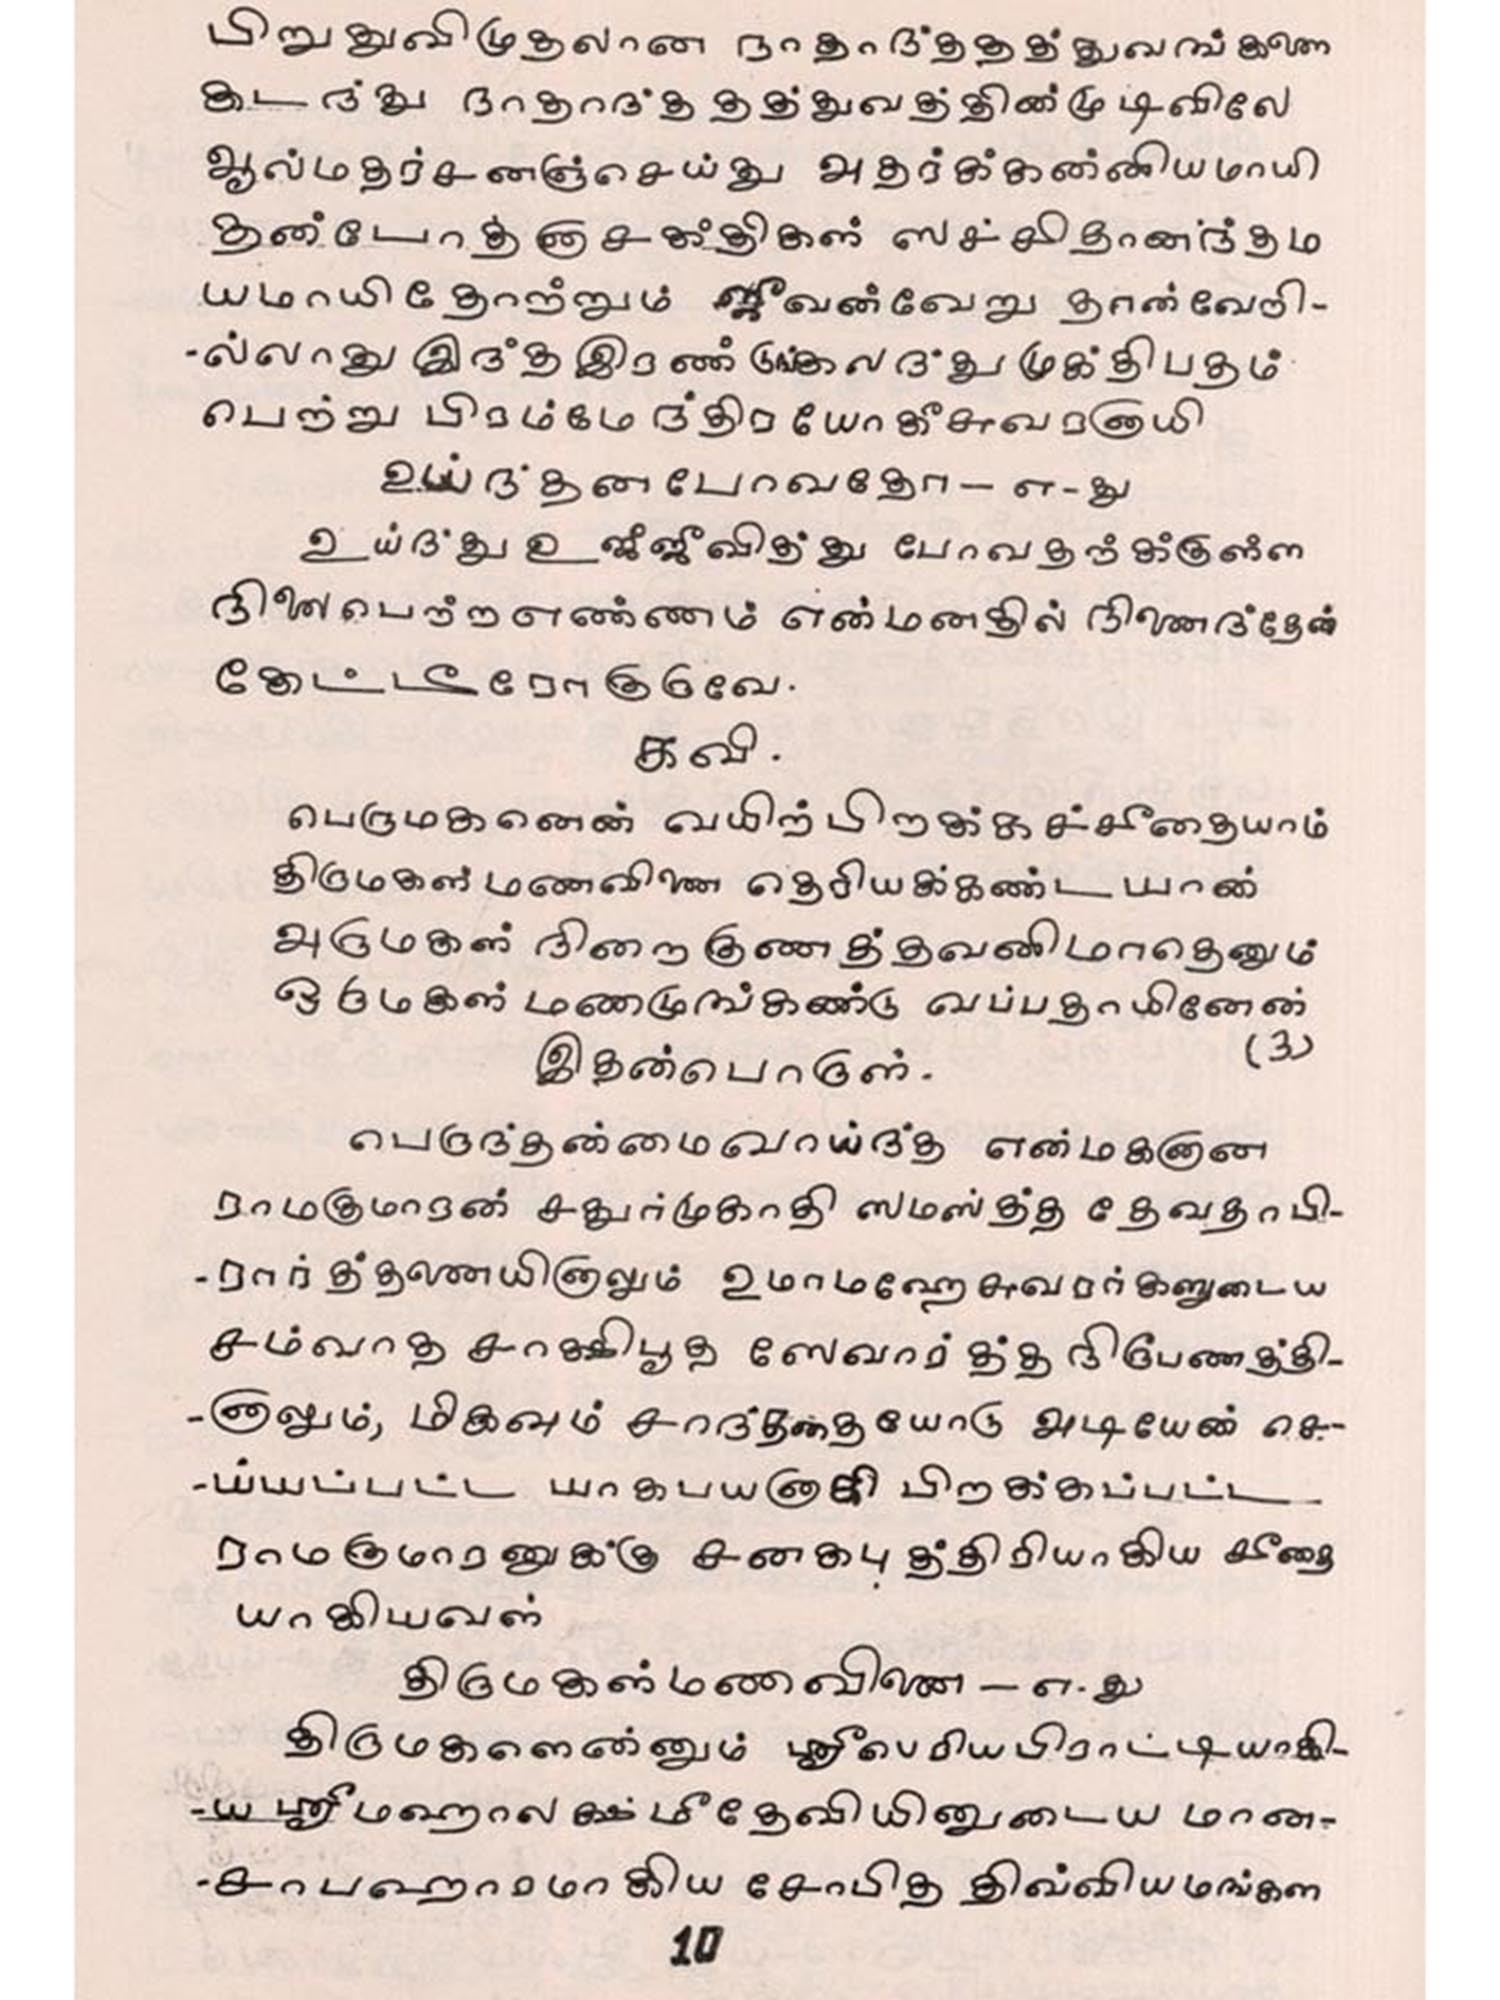 பிறுதுவிமுதலான நாதாந்ததத்துவங்களை
கடந்து நாதாந்த தத்துவத்தின்முடிவிலே
ஆல்மதர்சனஞ்செய்து அதர்க்கண்ணியமாயி
தன்டோத்னுசக்திகள் ஸச்சிதானந்தம
யமாயிதோற்றும் ஜீவன்வேறு தான்வேறி-
-ல்லாது இந்த இரண்டுங்கலந்து முக்திபதம்
பெற்று பிரம்மேந்திர யோகீசுவரனாயி
உய்ந்தன போவதோ — எ-து
உய்ந்து உஜ்ஜீவித்து போவதற்க்குள்ள
நினைபெற்ற எண்ணம் என்மனதில் நிணைந்தேன்
கேட்டீரோகுருவே.
கவி.
பெருமகனென் வயிற்பிறக்கச்சீதையாம்
திருமகள் மணவினை தெரியக்கண்ட யான்
அருமகள் நிறைகுணத்தவனிமாதெனும்
ஒருமகள் மணமுங்கண்டு வப்பதாயினேன்
(3)
இதன்பொருள்.
பெருந்தன்மைவாய்ந்த என்மகனான
ராமகுமாரன் சதுர்முகாதி ஸமஸ்த்த தேவதாபி-
-ரார்த்தணையினாலும் உமாமஹேசுவரர்களுடைய
சம்வாத சாக்ஷிபூத ஸேவார்த்த நிரூபணத்தி-
-னாலும், மிகவும் சாந்ததையோடு அடியேன் செ-
-ய்யப்பட்ட யாகபயனாகி பிறக்கப்பட்ட
ராமகுமாரனுக்கு சனகபுத்திரியாகிய சீதை
யாகியவள்
திருமகள்மணவினை — எ.து
திருமகளென்னும் ஸ்ரீபெரியபிராட்டியாகி-
-ய ஸ்ரீமஹாலக்ஷ்மீதேவியினுடைய மான-
-சாபஹாரமாகிய சோபித திவ்வியமங்கள
10